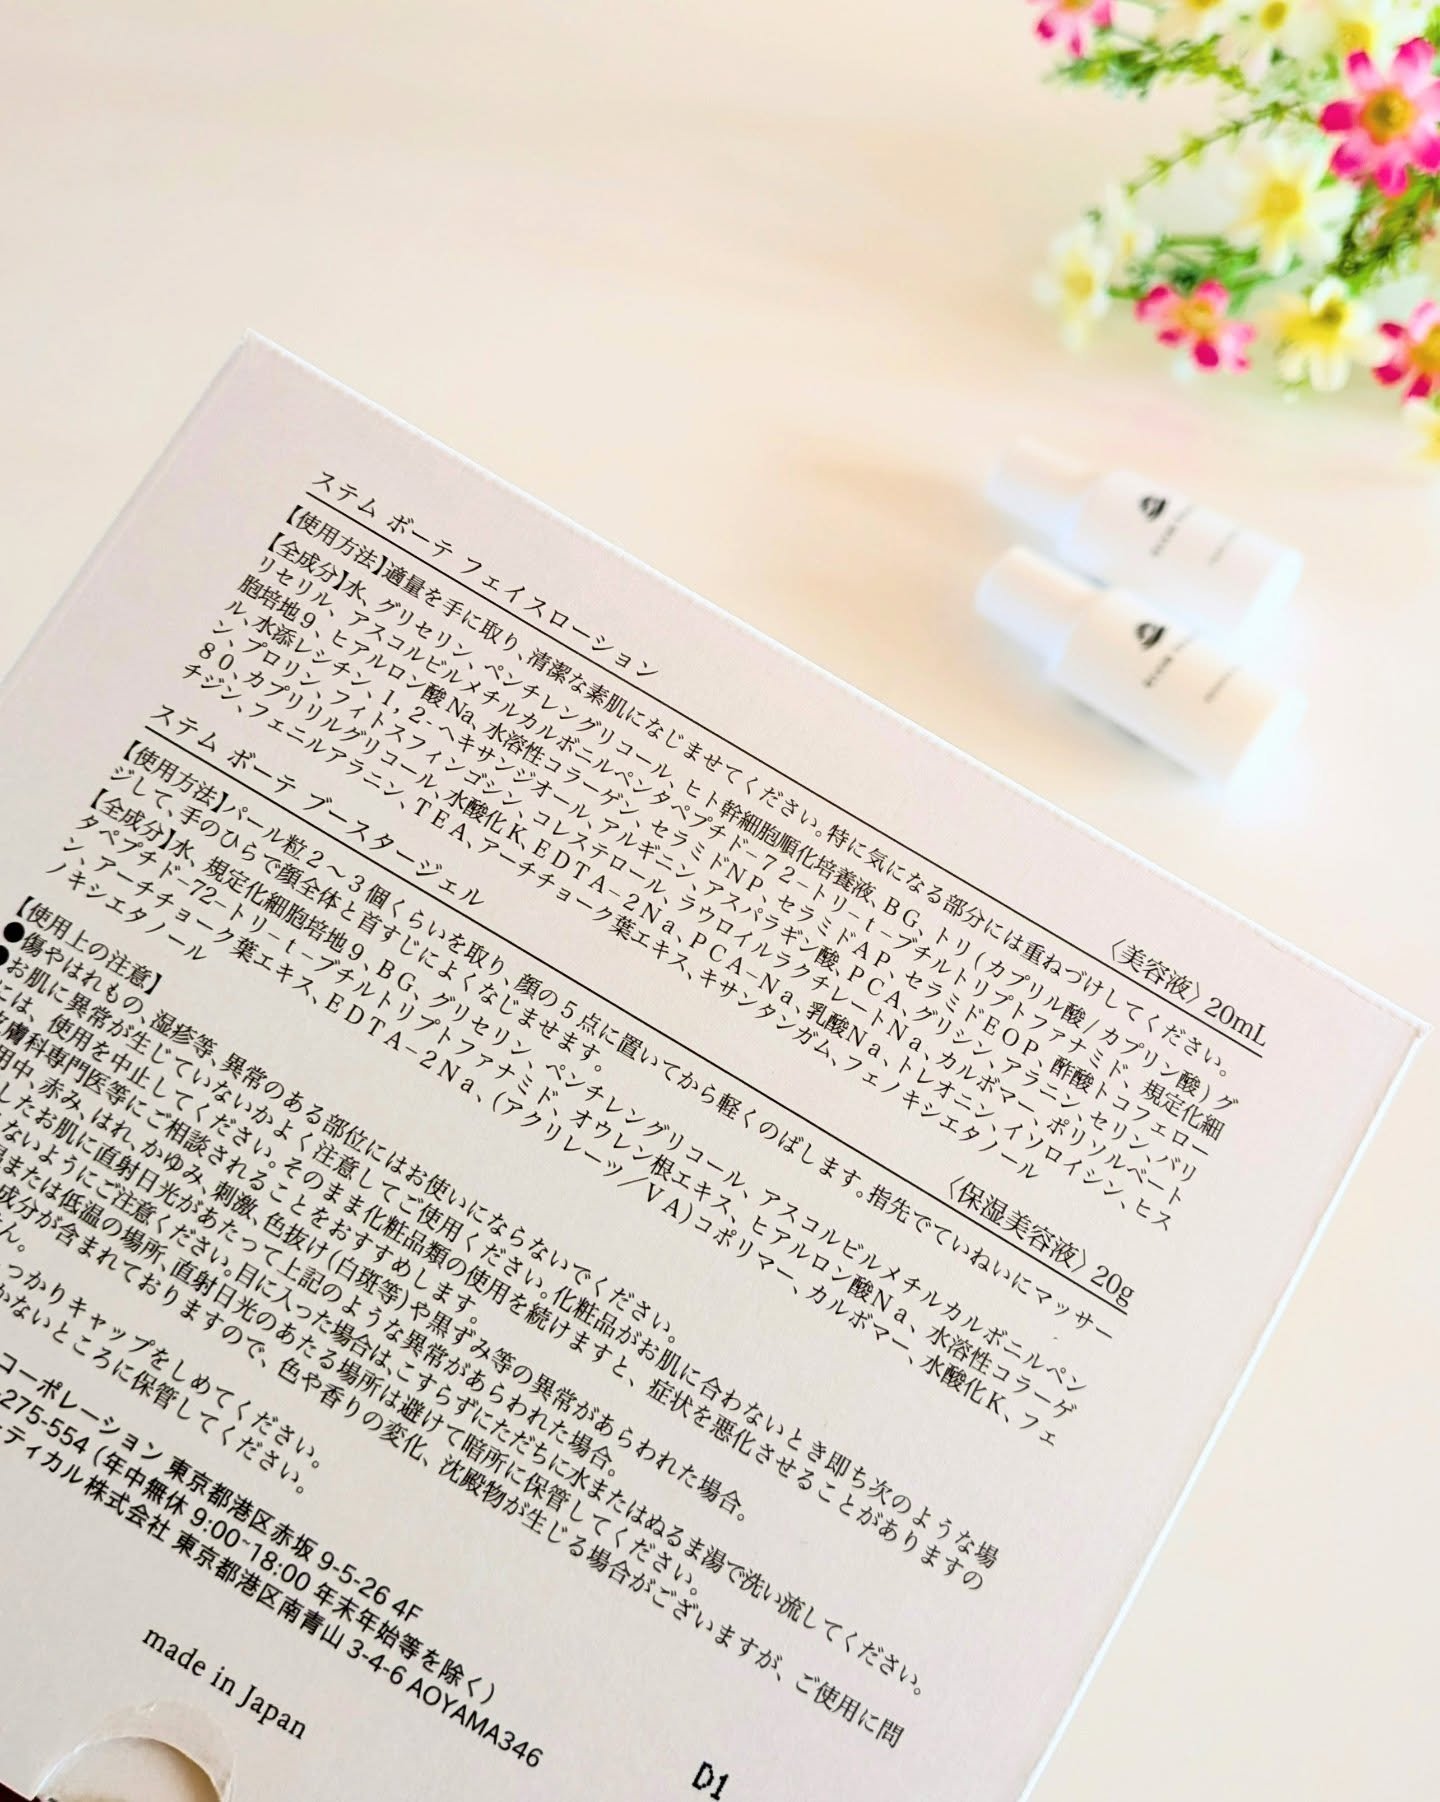 ステム ボーテ フェイスローション 〈美容液〉20mL
【使用方法】適量を手に取り、清潔な素肌になじませてください。特に気になる部分には重ねづけしてください。
【全成分】水、グリセリン、ペンチレングリコール、ヒト幹細胞順化培養液、BG、トリ(カプリル酸/カプリン酸)グ
リセリル、アスコルビルメチルカルボニルペンタペプチド-72-トリ-t-ブチルトリプトファナミド、規定化細
胞培地9、ヒアルロン酸Na、水溶性コラーゲン、セラミドNP、セラミドAP、セラミドEOP、酢酸トコフェロー
ル、水添レシチン、1,2-ヘキサンジオール、アルギニン、アスパラギン酸、PCA、グリシン、アラニン、セリン、バリ
ン、プロリン、フィトスフィンゴシン、コレステロール、ラウロイルラクチレートNa、カルボマー、ポリソルベート
80、カプリリルグリコール、水酸化K、EDTA-2Na、PCA-Na、乳酸Na、トレオニン、イソロイシン、ヒス
チジン、フェニルアラニン、TEA、アーチチョーク葉エキス、キサンタンガム、フェノキシエタノール
ステム ボーテ ブースタージェル 〈保湿美容液〉20g
【使用方法】パール粒2～3個くらいを取り、顔の5点に置いてから軽くのばします。指先でていねいにマッサー
ジして、手のひらで顔全体と首すじによくなじませます。
【全成分】水、規定化細胞培地9、BG、グリセリン、ペンチレングリコール、アスコルビルメチルカルボニルペン
タペプチド-72-トリ-t-ブチルトリプトファナミド、オウレン根エキス、ヒアルロン酸Na、水溶性コラーゲ
ン、アーチチョーク葉エキス、EDTA-2Na、(アクリレーツ/VA)コポリマー、カルボマー、水酸化K、フェ
ノキシエタノール
【使用上の注意】
●傷やはれもの、湿疹等、異常のある部位にはお使いにならないでください。
●お肌に異常が生じていないかよく注意してご使用ください。化粧品がお肌に合わないとき即ち次のような場
には、使用を中止してください。そのまま化粧品類の使用を続けますと、症状を悪化させることがありますの
皮膚科専門医等にご相談されることをおすすめします。
用中、赤み、はれ、かゆみ、刺激、色抜け(白斑等)や黒ずみ等の異常があらわれた場合。
したお肌に直射日光があたって上記のような異常があらわれた場合。
ないようにご注意ください。目に入った場合は、こすらずにただちに水またはぬるま湯で洗い流してください。
または低温の場所、直射日光のあたる場所は避けて暗所に保管してください。
成分が含まれておりますので、色や香りの変化、沈殿物が生じる場合がございますが、ご使用に問
ん。
っかりキャップをしめてください。
かないところに保管してください。
コーポレーション 東京都港区赤坂 9-5-26 4F
-275-554 (年中無休 9:00~18:00 年末年始等を除く)
ティカル株式会社 東京都港区南青山 3-4-6 AOYAMA346
made in Japan
D1